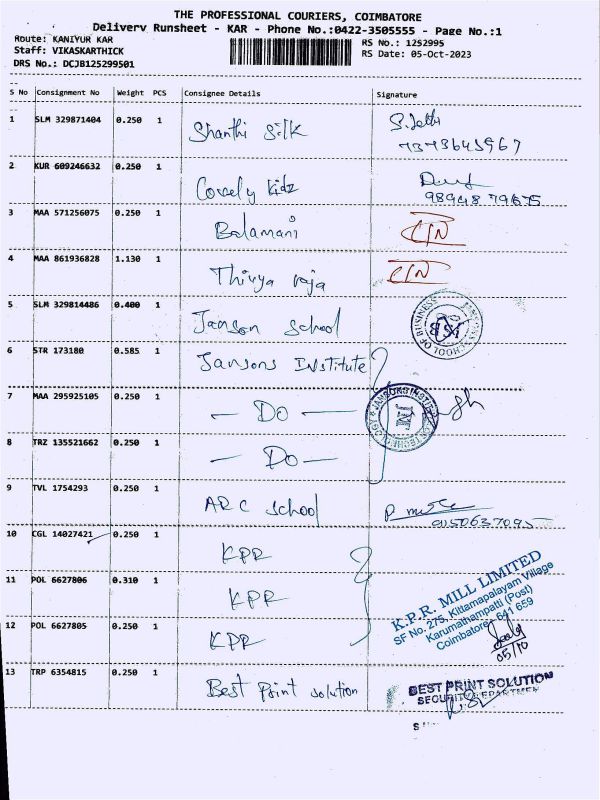 THE PROFESSIONAL COURIERS, COIMBATORE
Delivery Runsheet - KAR - Phone No.:0422-3505555 - Page No.:1
Route: KANIYUR KAR
Staff: VIKASKARTHICK
DRS No.: DCJB125299501
RS No.: 1252995
RS Date: 05-Oct-2023
S No Consignment No Weight PCS Consignee Details Signature
1 SLM 329871404 0.250 1 Shanthi Silk
7373645967
2 KUR 609246632 0.250 1 Lovely Kidz
98948 79675
3 MAA 571256075 0.250 1 Balamani
4 MAA 861936828 1.130 1 Thivya raja
5 SLM 329814486 0.400 1 Janson School
JANSONS SCHOOL OF BUSINESS
JSB
6 STR 173180 0.585 1 Jansons Institute
7 MAA 295925105 0.250 1 — Do —
JANSONS INSTITUTE OF TECHNOLOGY
8 TRZ 135521662 0.250 1 — Do —
9 TVL 1754293 0.250 1 ARC School
10 CGL 14027421 0.250 1 KPR
11 POL 6627806 0.310 1 KPR
12 POL 6627805 0.250 1 KPR
K.P.R. MILL LIMITED
SF No. 275, Kittamapalayam Village
Karumathampatti (Post)
Coimbatore - 641 659
05/10
13 TRP 6354815 0.250 1 Best Print Solution
BEST PRINT SOLUTION
SECURITY DEPARTMENT